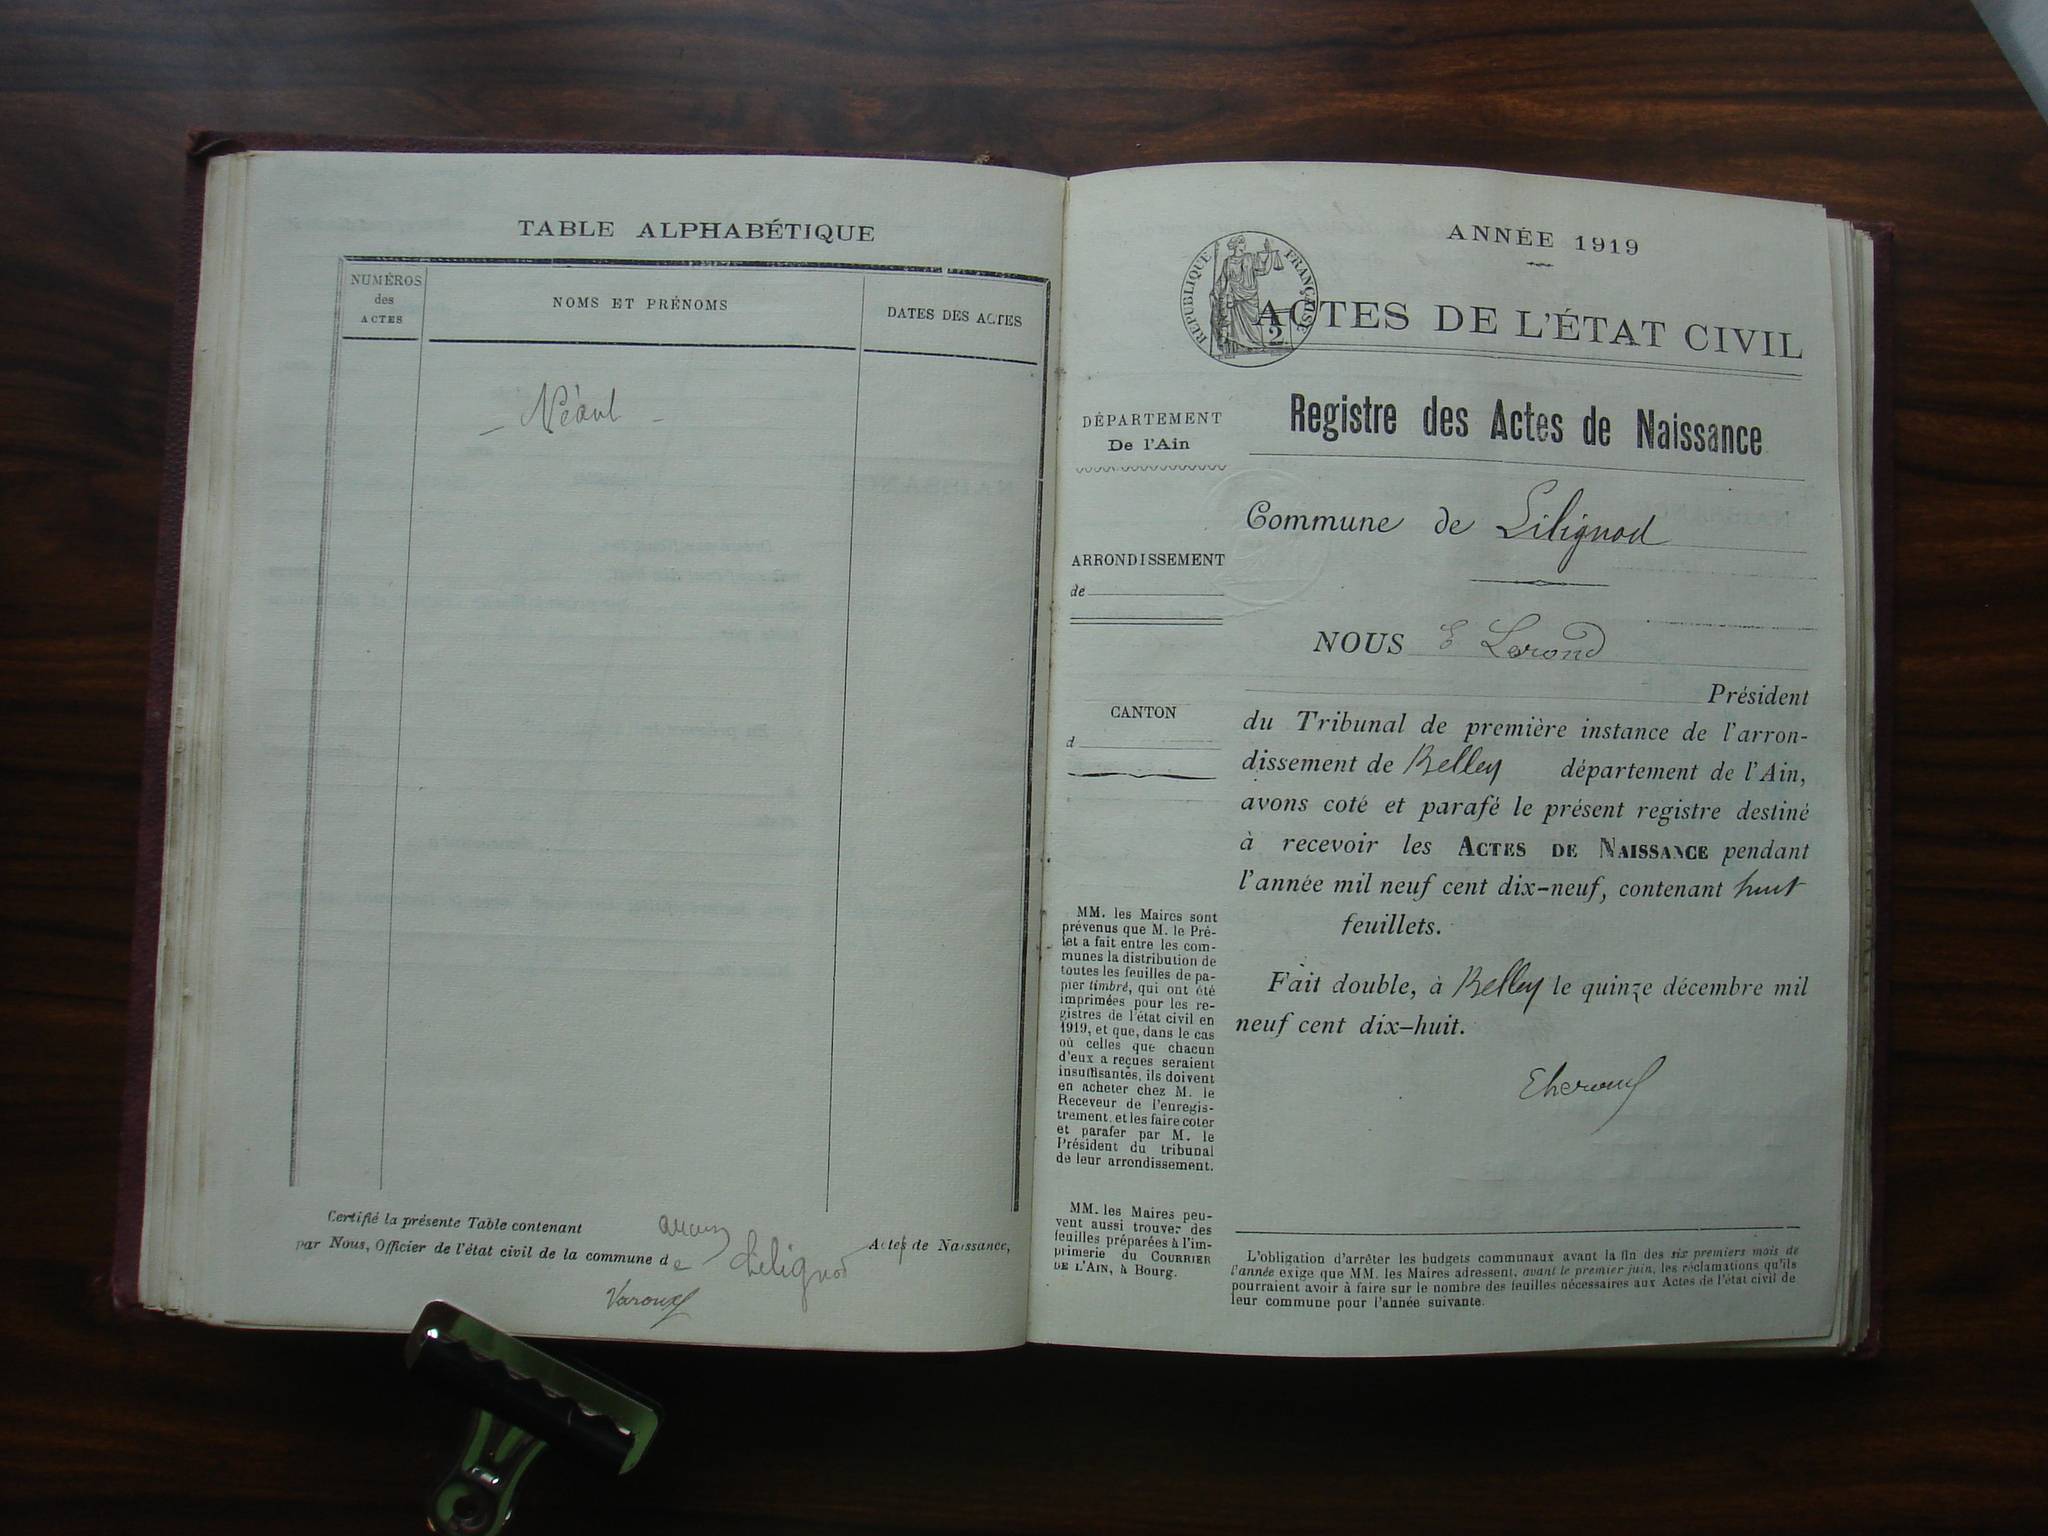 TABLE ALPHABÉTIQUE
NUMÉROS
des
ACTES
NOMS ET PRÉNOMS
DATES DES ACTES
— Néant —
Certifié la présente Table contenant aucun Actes de Naissance,
par Nous, Officier de l'état civil de la commune de Lilignod
Varoux
ANNÉE 1919
RÉPUBLIQUE FRANÇAISE
2
ACTES DE L'ÉTAT CIVIL
DÉPARTEMENT
De l'Ain
ARRONDISSEMENT
de
CANTON
d
MM. les Maires sont
prévenus que M. le Pré-
fet a fait entre les com-
munes la distribution de
toutes les feuilles de pa-
pier timbré, qui ont été
imprimées pour les re-
gistres de l'état civil en
1919, et que, dans le cas
où celles que chacun
d'eux a reçues seraient
insuffisantes, ils doivent
en acheter chez M. le
Receveur de l'enregis-
trement, et les faire coter
et parafer par M. le
Président du tribunal
de leur arrondissement.
MM. les Maires peu-
vent aussi trouver des
feuilles préparées à l'im-
primerie du COURRIER
DE L'AIN, à Bourg.
Registre des Actes de Naissance
Commune de Lilignod
NOUS E Lerond
Président
du Tribunal de première instance de l'arron-
dissement de Belley département de l'Ain,
avons coté et parafé le présent registre destiné
à recevoir les ACTES DE NAISSANCE pendant
l'année mil neuf cent dix-neuf, contenant huit
feuillets.
Fait double, à Belley le quinze décembre mil
neuf cent dix-huit.
L'obligation d'arrêter les budgets communaux avant la fin des six premiers mois de
l'année exige que MM. les Maires adressent, avant le premier juin, les réclamations qu'ils
pourraient avoir à faire sur le nombre des feuilles nécessaires aux Actes de l'état civil de
leur commune pour l'année suivante.